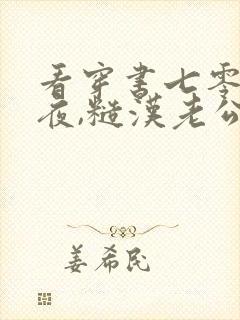 看穿书七零
夜,糙汉老公
姜希民